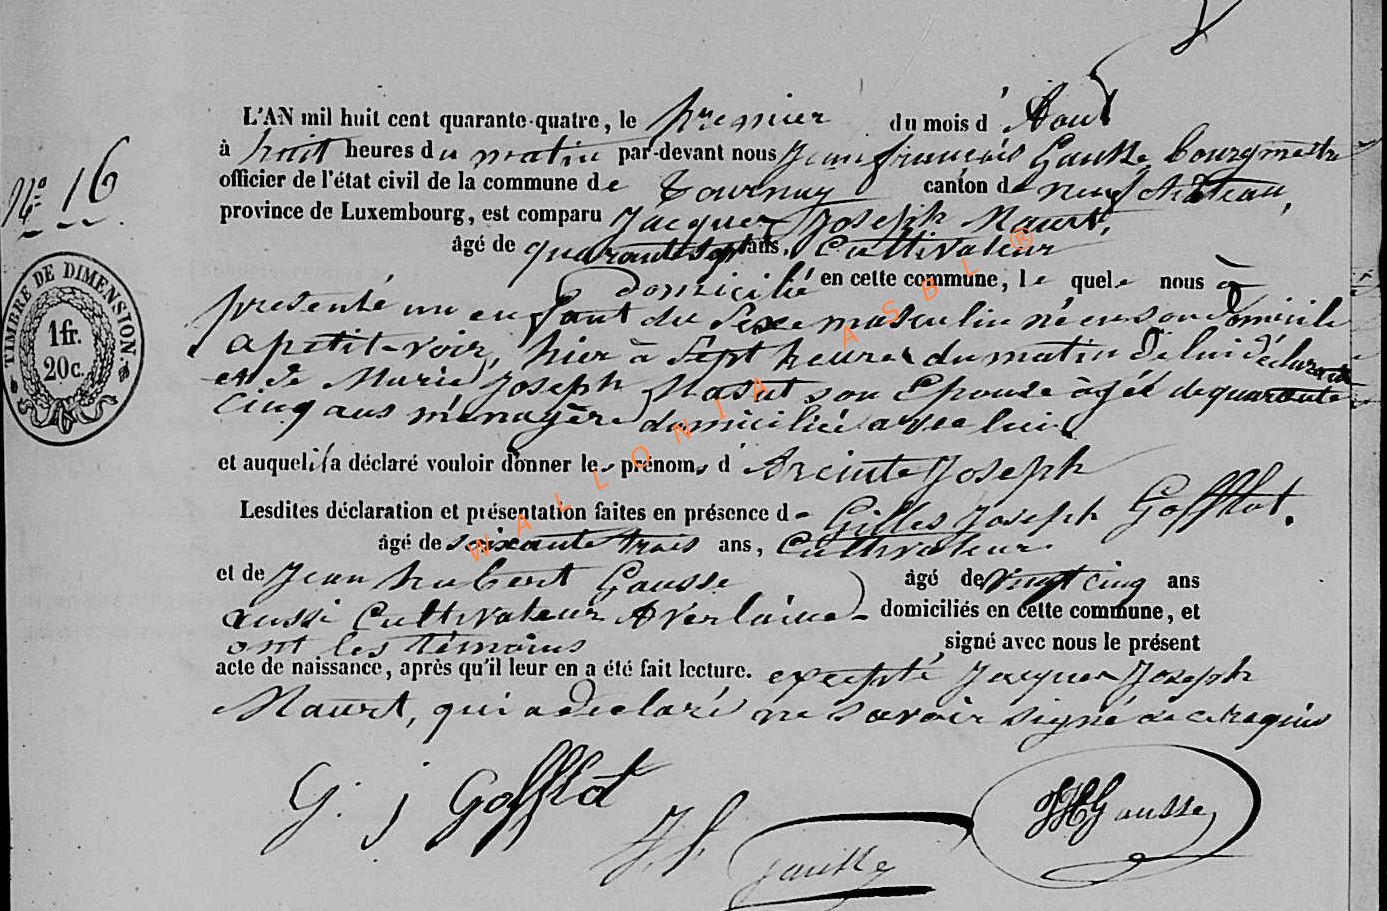 L'AN mil huit cent quarante-quatre, le premier du mois d'Aout
à huit heures du matin par-devant nous Jean françois Gausse, bourgmestre
officier de l'état civil de la commune de Tournay canton de neufchâteau,
province de Luxembourg, est comparu Jacques Joseph
âgé de quarante sept ans, Cultivateur
Domicilié en cette commune, le quel nous à
présenté un enfant du sexe masculin né en son domicile
a petit-voir, hier à sept heures du matin de lui déclarant
et de Marie Joseph son Epouse âgée de quarante
cinq ans ménagère domiciliée avec lui
et auquel il a déclaré vouloir donner les prénoms d'Arcinte Joseph
Lesdites déclaration et présentation faites en présence de Gilles Joseph Gofflot.
âgé de soixante trois ans, Cultivateur
et de Jean hubert Gausse âgé de vingt cinq ans
aussi Cultivateur A verlaine domiciliés en cette commune, et
ont les témoins signé avec nous le présent
acte de naissance, après qu'il leur en a été fait lecture. excepté Jacques Joseph
qui a déclaré ne savoir signé de ce requis
N° 16
TIMBRE DE DIMENSION.
1 fr.
20 c.
G. J Gofflot
J. f. Gausse
JH Gausse
WALLONIA ASBL ®